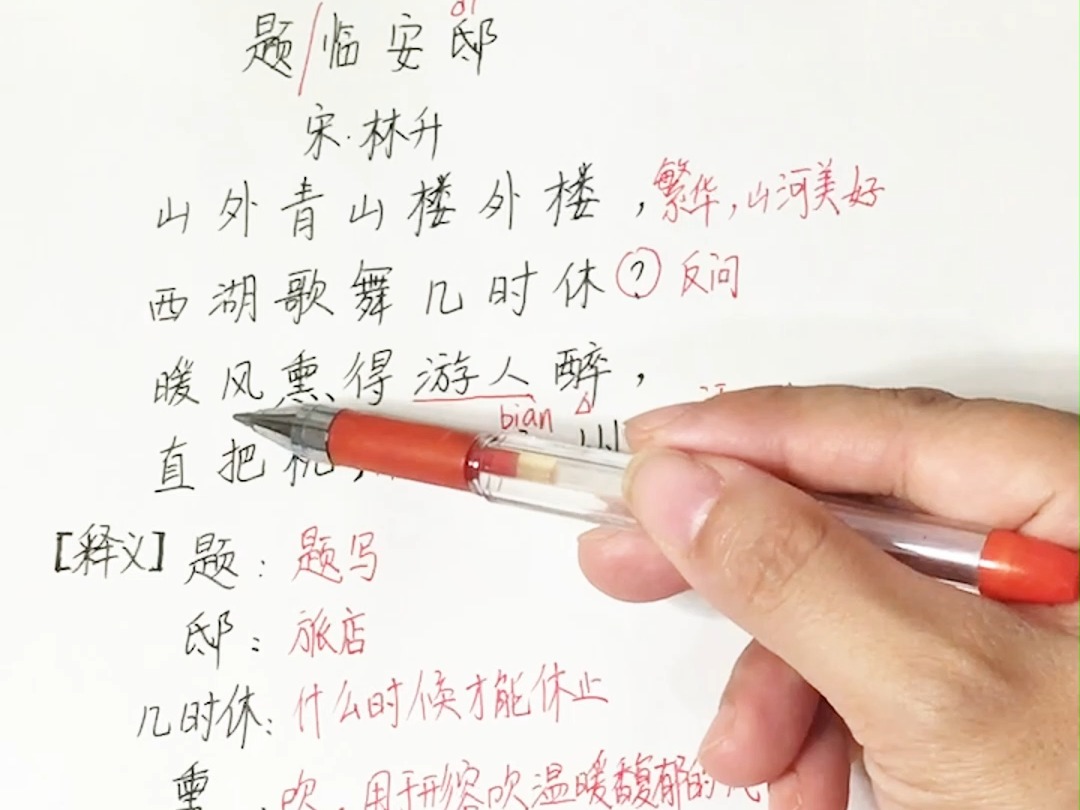 题/临安邸
宋·林升
山外青山楼外楼，繁华，山河美好
西湖歌舞几时休？反问
暖风熏得游人醉，
bian
直把杭
[释义]题：题写
邸：旅店
几时休：什么时候才能休止
熏：吹，用于形容吹温暖馥郁的